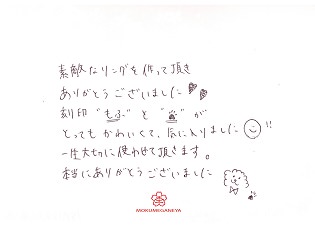 素敵なリングを作って頂き
ありがとうございました
刻印"もふ"と" "が
とってもかわいくて、気に入りました!!
一生大切に使わせて頂きます。
本当にありがとうございました
MOKUMEGANEYA